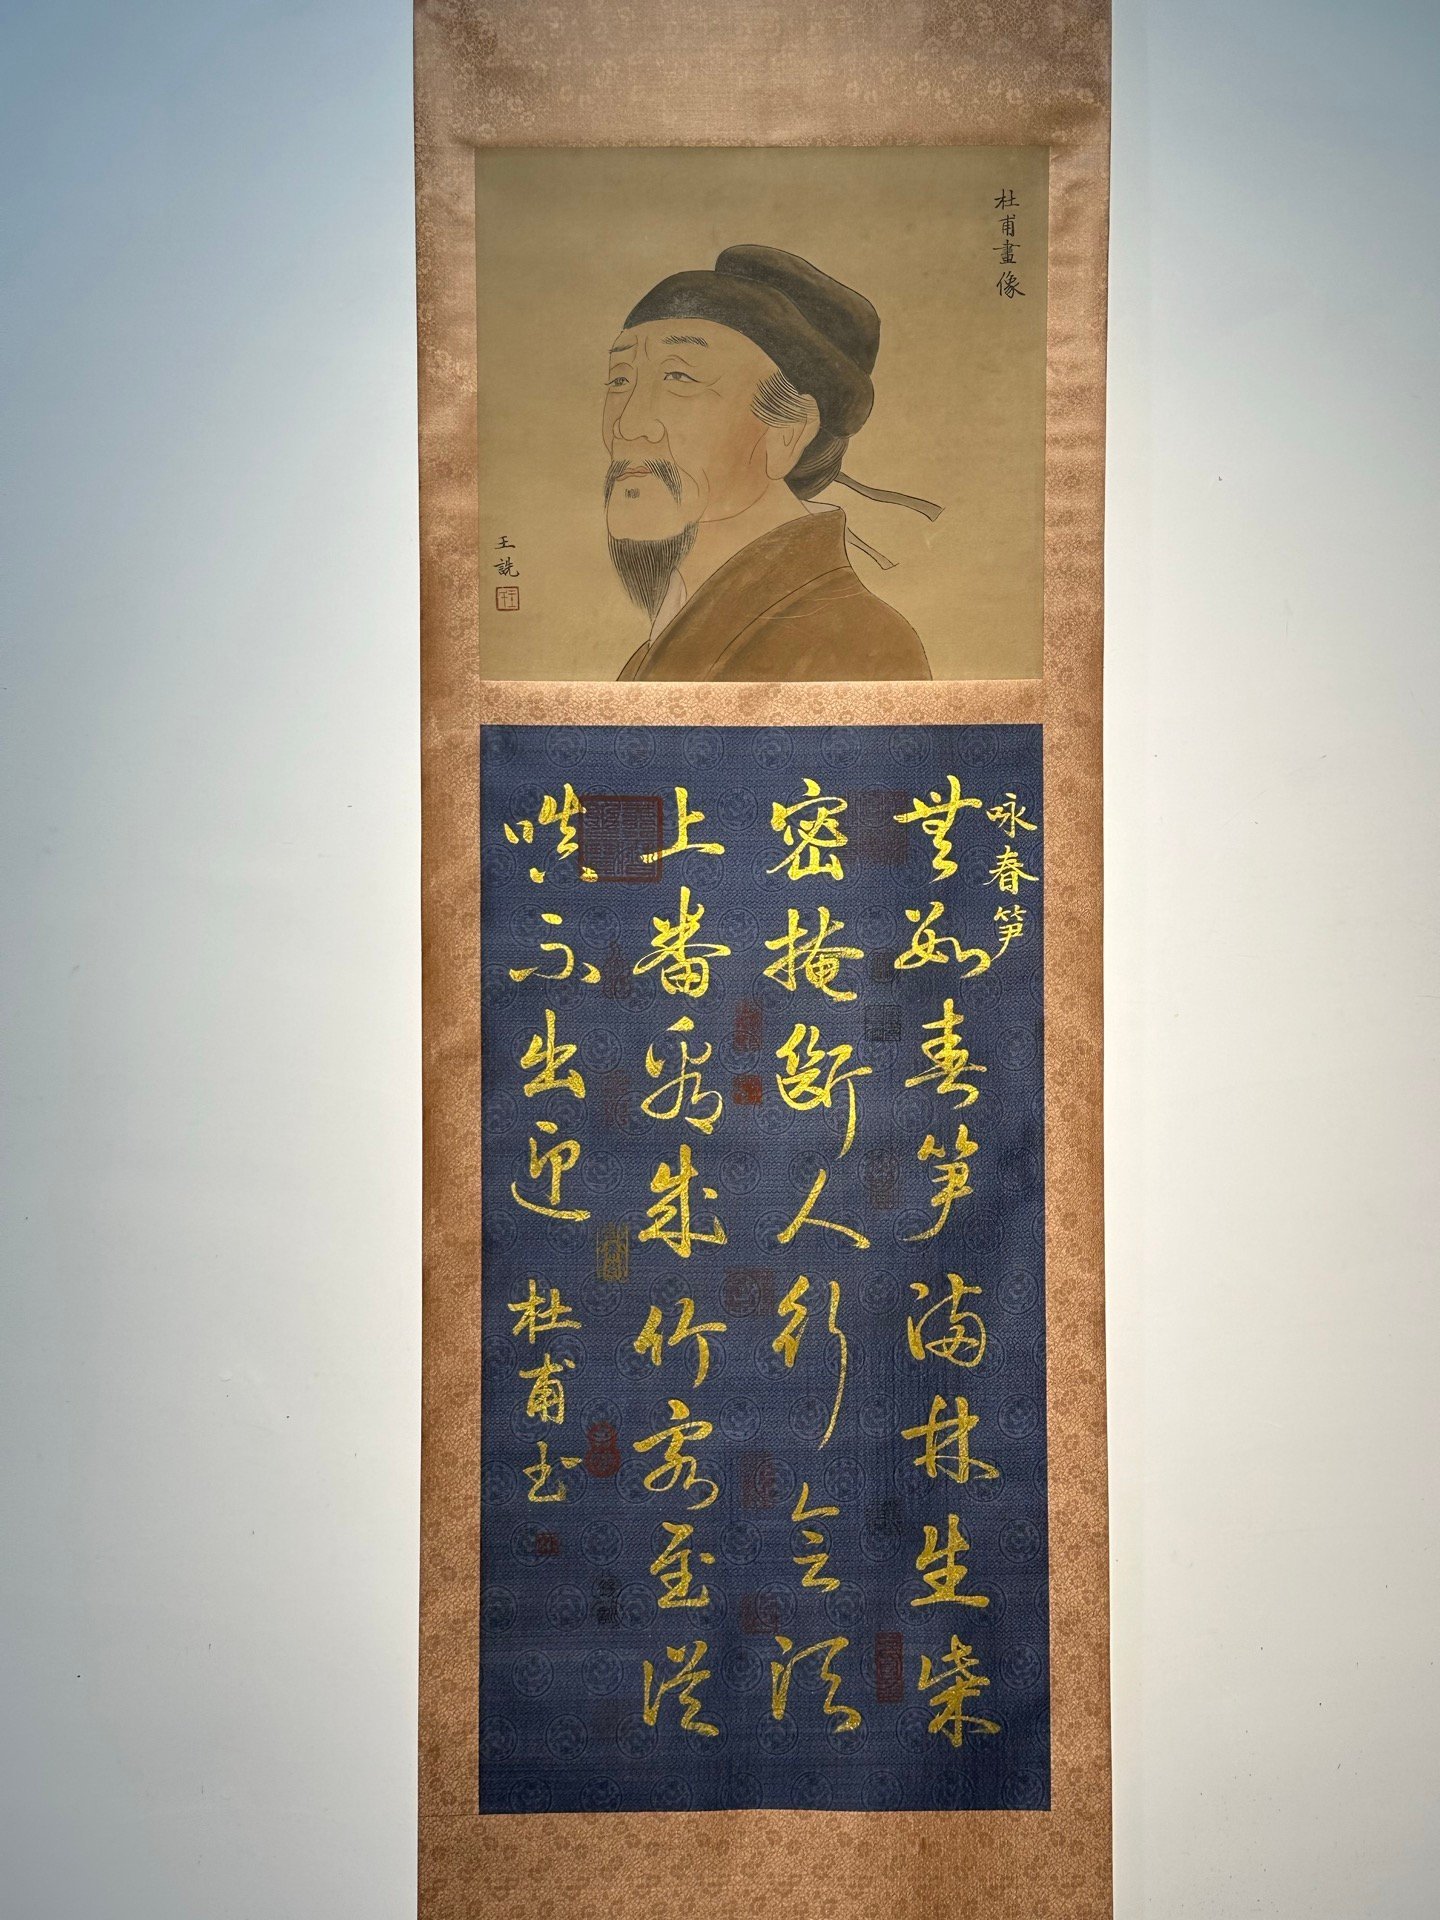 杜甫畫像
王詵
咏春笋
無數春笋滿林生柴
密掩斷人行會須
上番看成竹客至從
嗔不出迎
杜甫書